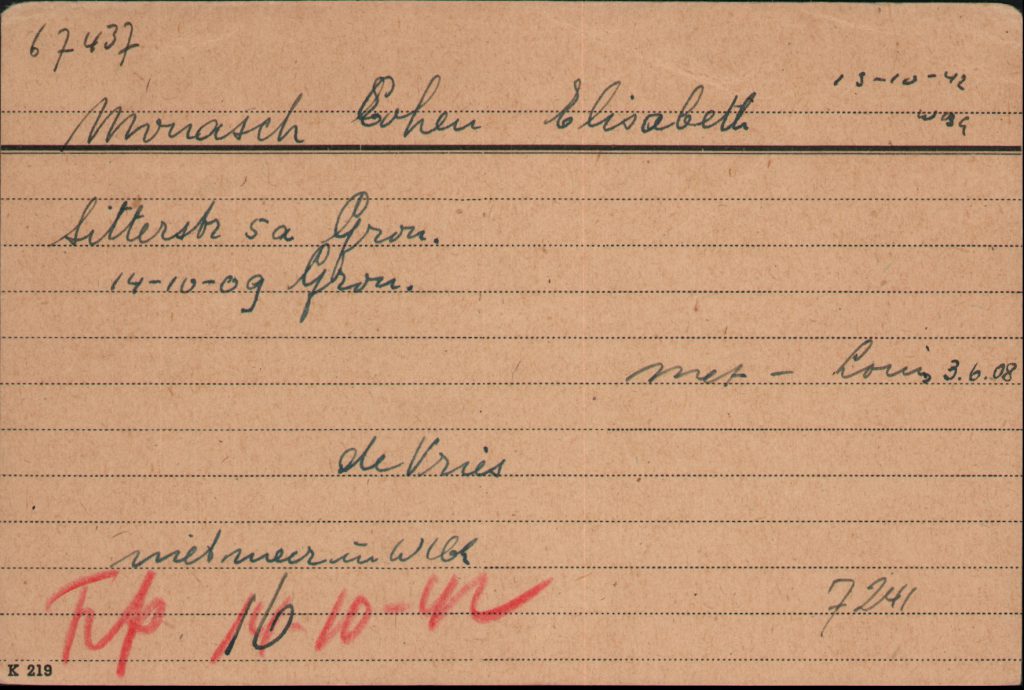 67437
13-10-42
Monasch Cohen Elisabeth
Wbg
Sitterstr 5a Gron.
14-10-09 Gron.
met - Louis 3.6.08
de Vries
niet meer in Wbk
Trp 16-10-42
7241
K 219